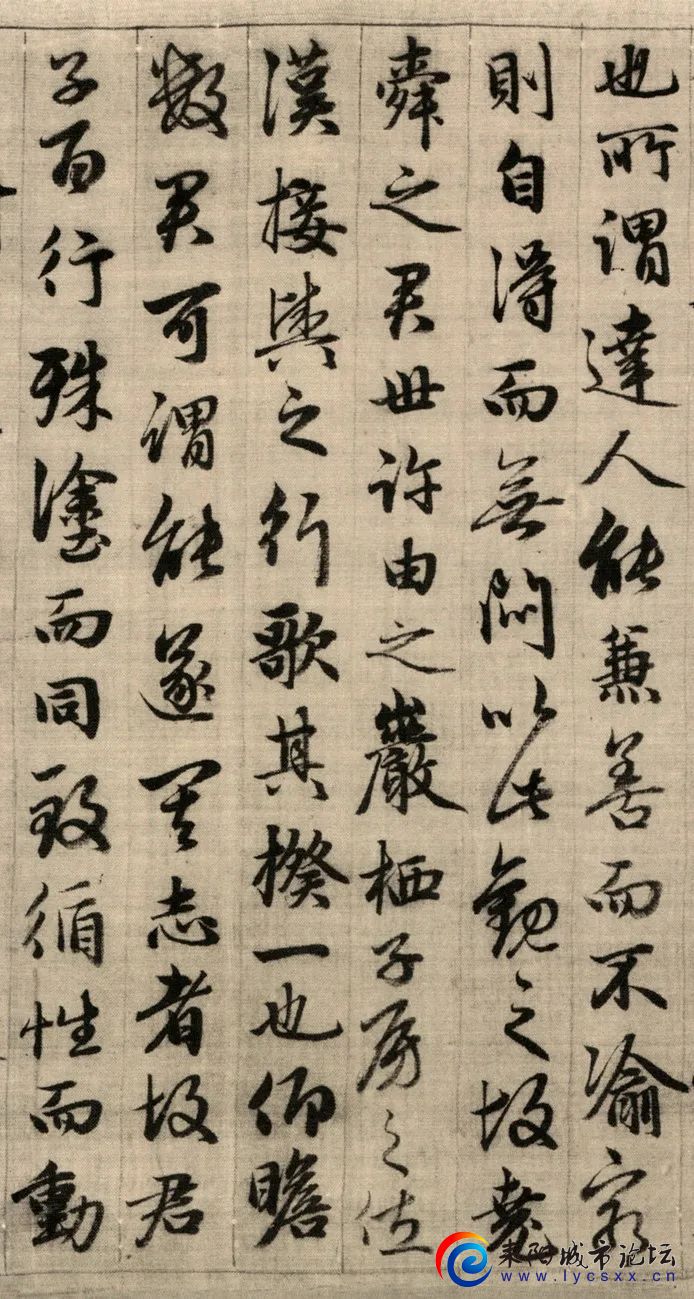 也所謂達人能兼善而不渝窮
則自得而無悶以此觀之故堯
舜之君世許由之巖栖子房之佐
漢接輿之行歌其揆一也仰瞻
數君可謂能遂其志者故君
子百行殊塗而同致循性而動
耒阳城市论坛
www.lycsxx.cn